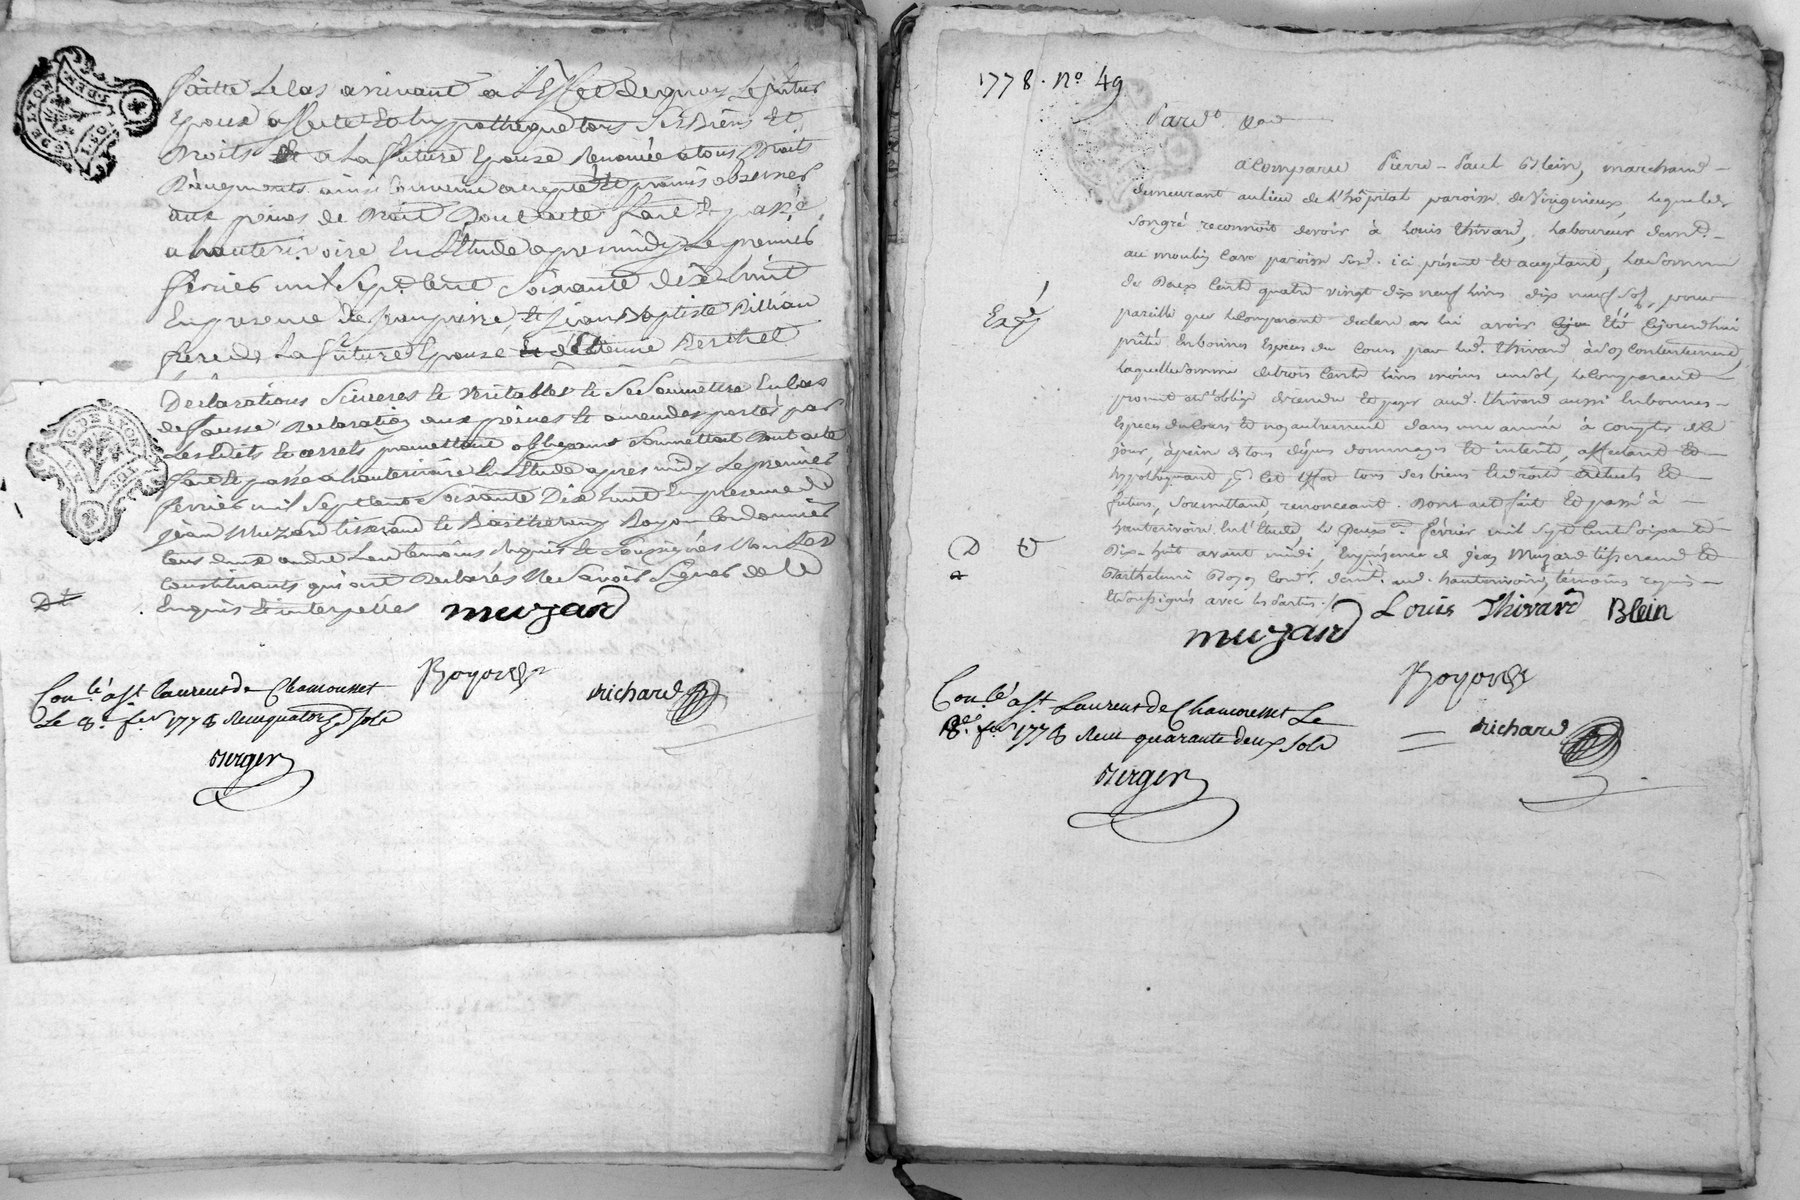 faitte le cas arrivant a l'effet de quoy le futur
Epoux affecte et hypothèque tous ses Biens et
droits et a la future Epouse Renoncée a tous droits
ainsi convenu accepté et promis observer
aux peines de droit Dont acte fait et passé
a hauterivoire En l'Etude apres midy le premier
fevrier mil sept cent soixante dix huit
En presence de françois pierre, et jean Baptiste
frere de la future Epouse et d'etienne Berthet
Declarations sinceres et veritables et se soumettre En cas
de fausse declaration aux peines et amendes portés par
les Edits et arrets promettant obligeant soumettant Dont acte
fait et passé a hauterivoire En l'Etude apres midy le premier
fevrier mil sept cent soixante Dix huit En presence de
jean Muzard tisserand et Barthelemy Boyon Cordonnier
tous deux audit Lieu temoins Requis et soussignés Non les
Constituants qui ont Declarés Ne savoir signer de ce
Enquis et interpellés muzard
Dt
Boyon
richard
Con.lé a St Laurent de Chamousset
Le 8.e fer 1778 Reçu quatorze sols
1778. No 49
Pardt
a comparu Pierre-Paul Blein, marchand
demeurant au lieu de l'hôpital paroisse de Virigneux, lequel de
son gré reconnoit devoir à Louis Thivard, laboureur demt
au moulin paroisse susd. ici présent et aceptant, la somme
de Deux cent quatre vingt dix neuf livres dix neuf sols, pour
pareille que le comparant declare lui avoir été cejourdhui
prêtée en bonnes especes du cours par led. Thivard à son contentement,
laquelle somme de trois cent livres moins un sol, le comparant
promet et s'oblige de rendre et payer aud. thivard aussi en bonnes
especes du cours et non autrement dans une année à compter de ce
jour, à peine de tous dépens dommages et interêt, affectant et
hypothequant pr cet effet tous ses biens et droits actuels et
futurs, soumettant, renonçant. Dont acte fait et passé à
hauterivoire en l'étude, le Deux.e février mil sept cent soixante
Dix-huit avant midi, En présence de jean Muzard tisserand et
Barthelemi Boyon cordr. demt. aud. hauterivoire, témoins requis
et soussignés avec les parties.
Louis Thivard Blein
muzard
Boyon
richard
Con.lé a St Laurent de Chamousset Le
8.e fer 1778 Reçu quarante deux sols